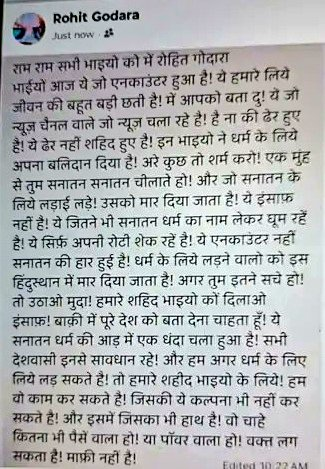 Rohit Godara
Just now
राम राम सभी भाइयो को में रोहित गोदारा
भाईयों आज ये जो एनकाउंटर हुआ है! ये हमारे लिये
जीवन की बहुत बड़ी छती है! में आपको बता दु! ये जो
न्यूज़ चैनल वाले जो न्यूज़ चला रहे है! है ना की ढेर हुए
है! ये ढेर नहीं शहिद हुए है! इन भाइयो ने धर्म के लिये
अपना बलिदान दिया है! अरे कुछ तो शर्म करो! एक मुंह
से तुम सनातन सनातन चीलाते हो! और जो सनातन के
लिये लड़ाई लड़े! उसको मार दिया जाता है! ये इंसाफ़
नहीं है! ये जितने भी सनातन धर्म का नाम लेकर घूम रहें
है! ये सिर्फ़ अपनी रोटी शेक रहें है! ये एनकाउंटर नहीं
सनातन की हार हुई है! धर्म के लिये लड़ने वालो को इस
हिंदुस्थान में मार दिया जाता है! अगर तुम इतने सचे हो!
तो उठाओ मुदा! हमारे शहिद भाइयो को दिलाओ
इंसाफ़! बाक़ी में पूरे देश को बता देना चाहता हूँ! ये
सनातन धर्म की आड़ में एक धंदा चला हुआ है! सभी
देशवासी इनसे सावधान रहे! और हम अगर धर्म के लिए
लिये लड़ सकते है! तो हमारे शहीद भाइयो के लिये! हम
वो काम कर सकते है! जिसकी ये कल्पना भी नहीं कर
सकते है! और इसमें जिसका भी हाथ है! वो चाहे
कितना भी पैसें वाला हो! या पॉवर वाला हो! वक्त लग
सकता है! माफ़ी नहीं है!
Edited 10:27 AM